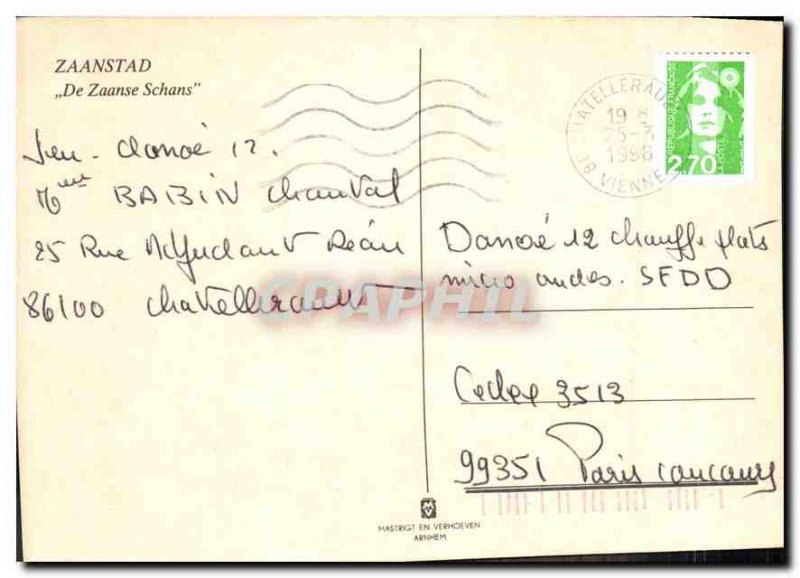 ZAANSTAD
„De Zaanse Schans"
Jeu - Danoé 12.
Mme BABIN Chantal
25 Rue Adjudant Réau
86100 Chatellerault
Danoé 12 chauffe plats
micro ondes. SFDD
Cedex 3513
99351 Paris concours
CHATELLERAULT
19 H
25-3
1998
VIENNE
86
REPUBLIQUE FRANÇAISE
2,70
LA POSTE
CPAPHIL
MASTRIGT EN VERHOEVEN
ARNHEM